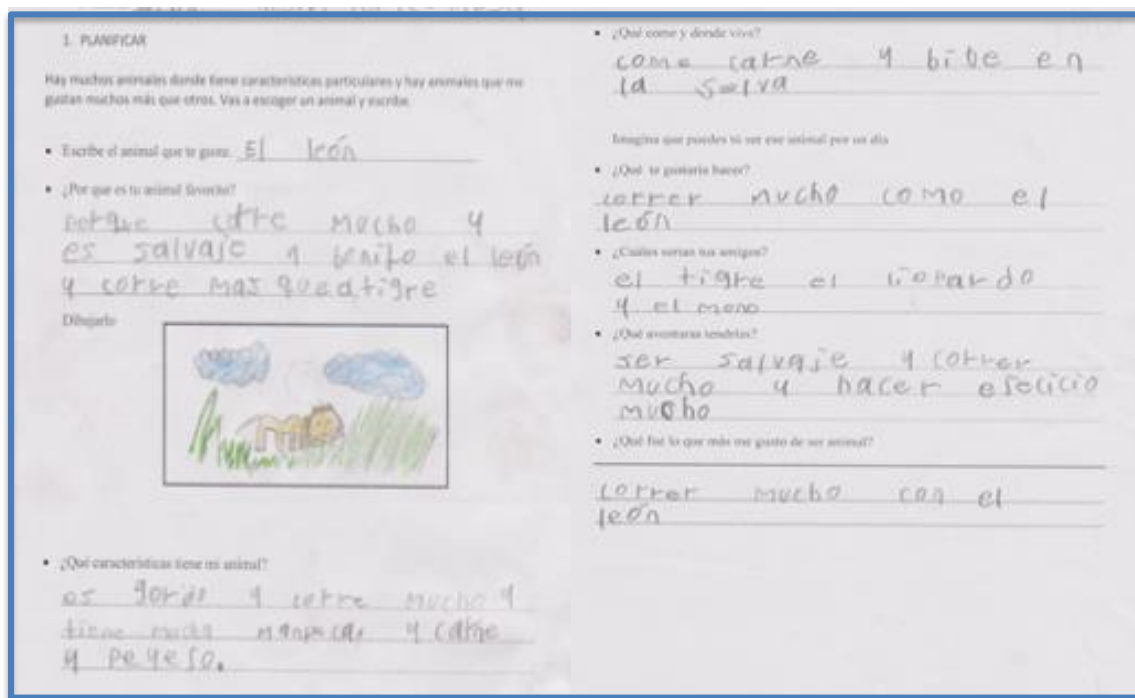 1. PLANIFICAR
Hay muchos animales donde tiene características particulares y hay animales que me
gustan muchos más que otros. Vas a escoger un animal y escribe.
• Escribe el animal que te gusta. El león
• ¿Por que es tu animal favorito?
porque corre mucho y
es salvaje y benito el león
y corre mas que
Dibujarlo
• ¿Qué características tiene mi animal?
es gordo y corre mucho y
tiene mucha y carne
y peyeso.
• ¿Qué come y donde vive?
come carne y bibe en
la selva
Imagina que puedes tú ser ese animal por un día
• ¿Qué te gustaría hacer?
correr mucho como el
león
• ¿Cuáles serían tus amigos?
el tigre el liopardo
y el mono
• ¿Qué aventuras tendrías?
ser salvaje y correr
mucho y hacer efecicio
mucho
• ¿Qué fue lo que más me gusto de ser animal?
correr mucho con el
león